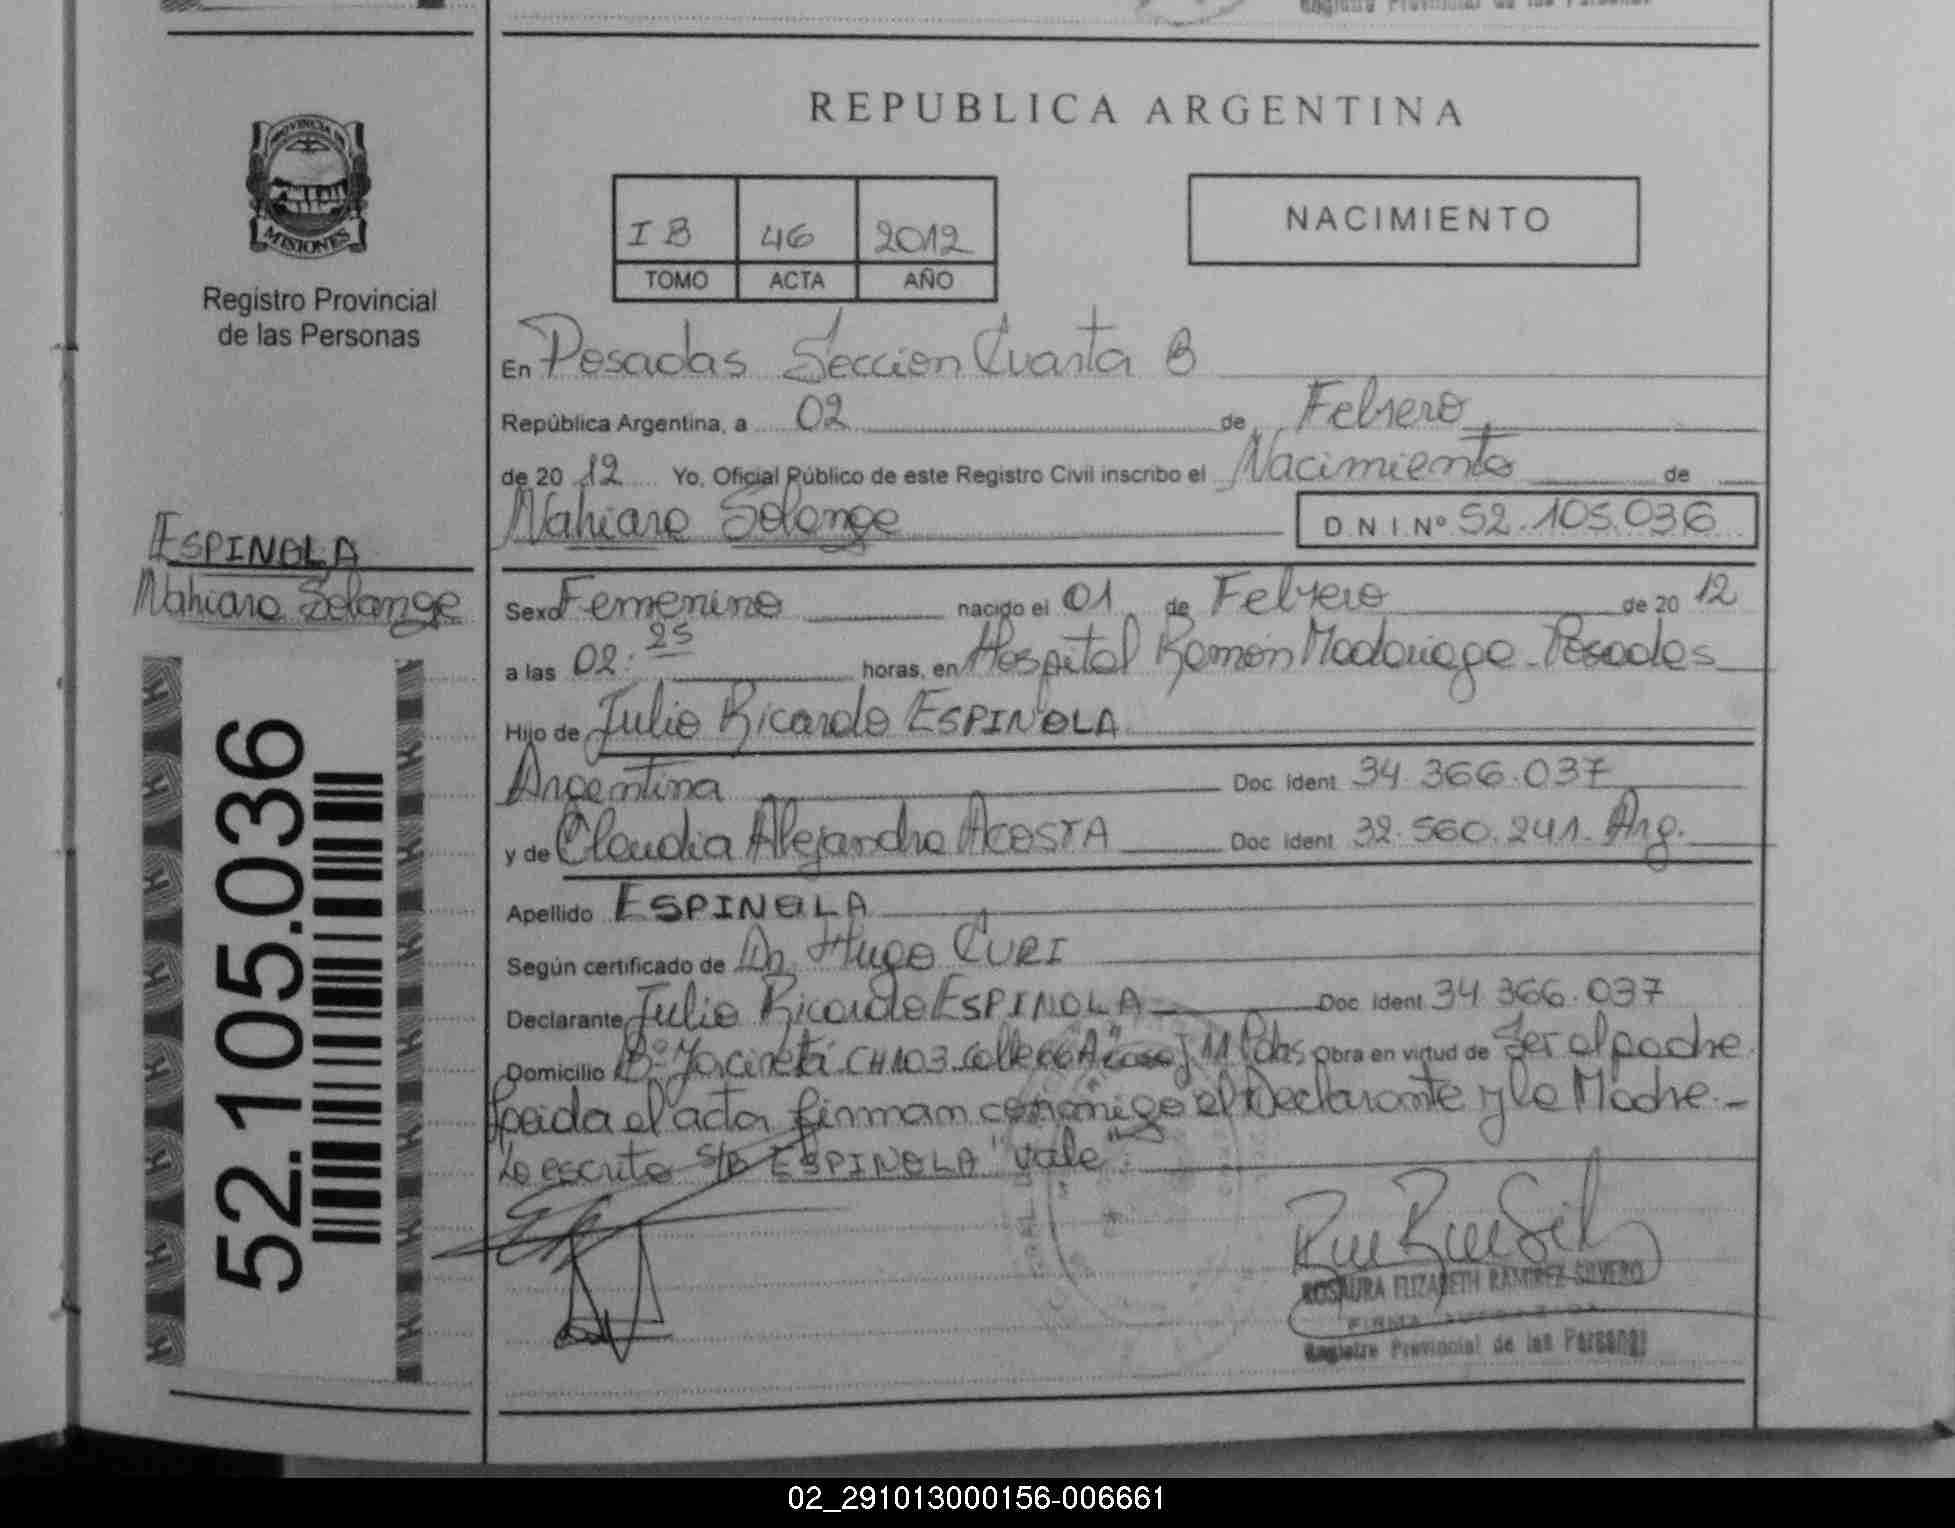 Registro Provincial de las Personas
REPUBLICA ARGENTINA
PROVINCIA DE
MISIONES
Registro Provincial
de las Personas
I B 46 2012
TOMO ACTA AÑO
NACIMIENTO
En Posadas Seccion Cuarta B
República Argentina, a 02 de Febrero
de 20 12 Yo, Oficial Público de este Registro Civil inscribo el Nacimiento de
Nahiara Solange D.N.I.Nº 52.105.036
ESPINOLA
Nahiara Solange
Sexo Femenino nacido el 01 de Febrero de 20 12
a las 02:25 horas, en Hospital Ramón Madariaga - Posadas
Hijo de Julio Ricardo ESPINOLA
Argentina Doc Ident 34.366.037
y de Claudia Alejandra ACOSTA Doc Ident 32.560.241. Arg.
Apellido ESPINOLA
Según certificado de Dr. Hugo CURI
Declarante Julio Ricardo ESPINOLA Doc Ident 34.366.037
Domicilio Bº Yacireta CH 103 Calle 66 "A" casa 11 Pdas Obra en virtud de Ser el padre
Leida el acta firman conmigo el Declarante y la Madre.-
Lo escrito S/B ESPINOLA "vale".
52.105.036
ROSAURA ELIZABETH RAMIREZ SILVERO
FIRMA AUTORIZADA
Registro Provincial de las Personas
02_291013000156-006661